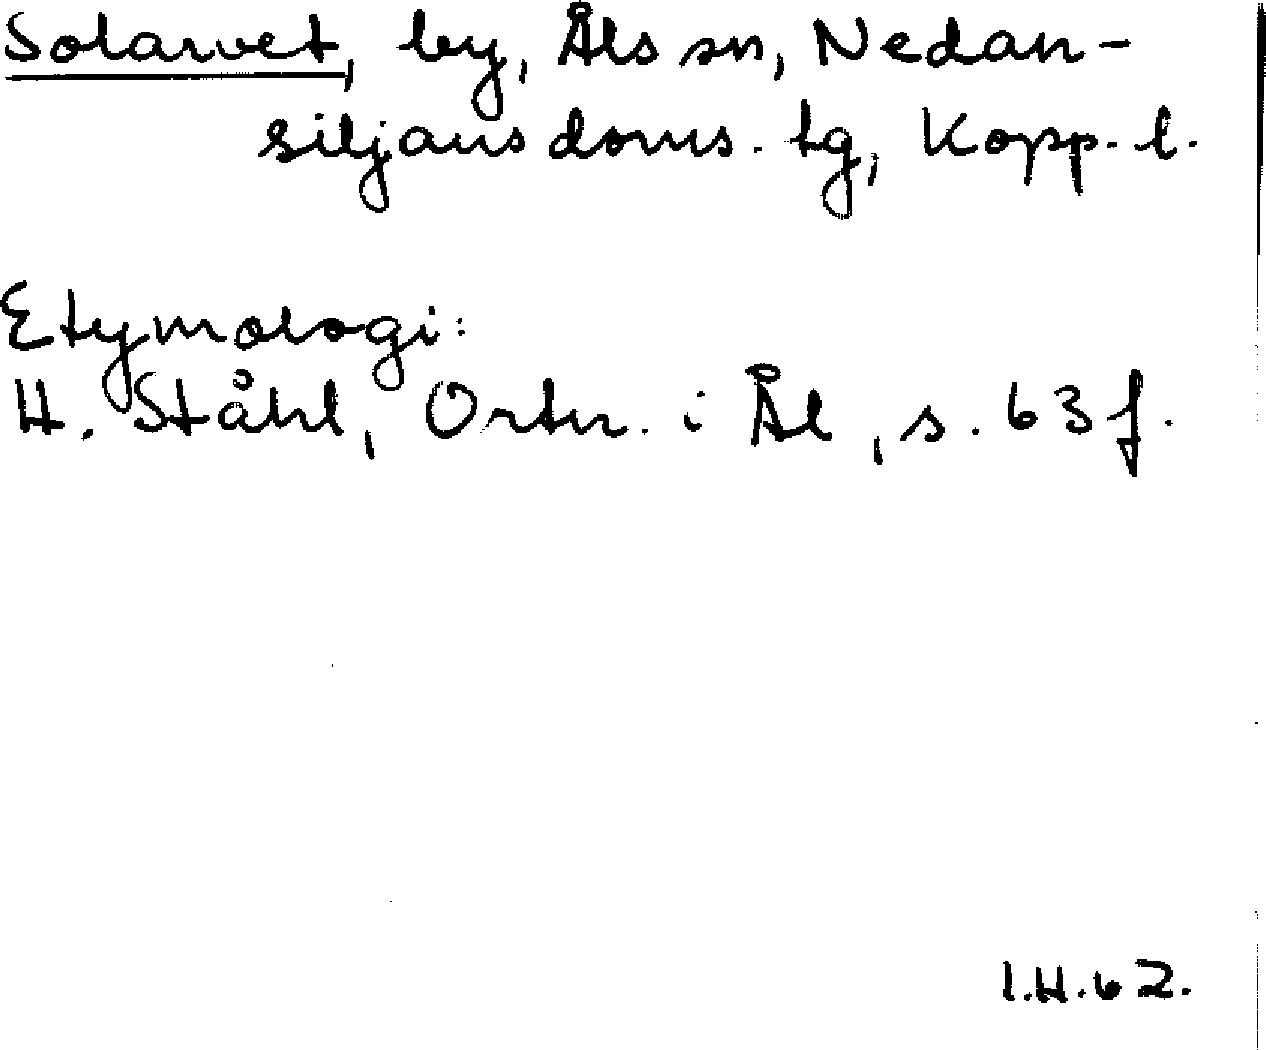 Solarvet, by, Åls sn, Nedan-
siljans doms. tg, Kopp. l.
Etymologi:
H. Ståhl, Ortn. i Ål, s. 63 f.
I.H. 62.